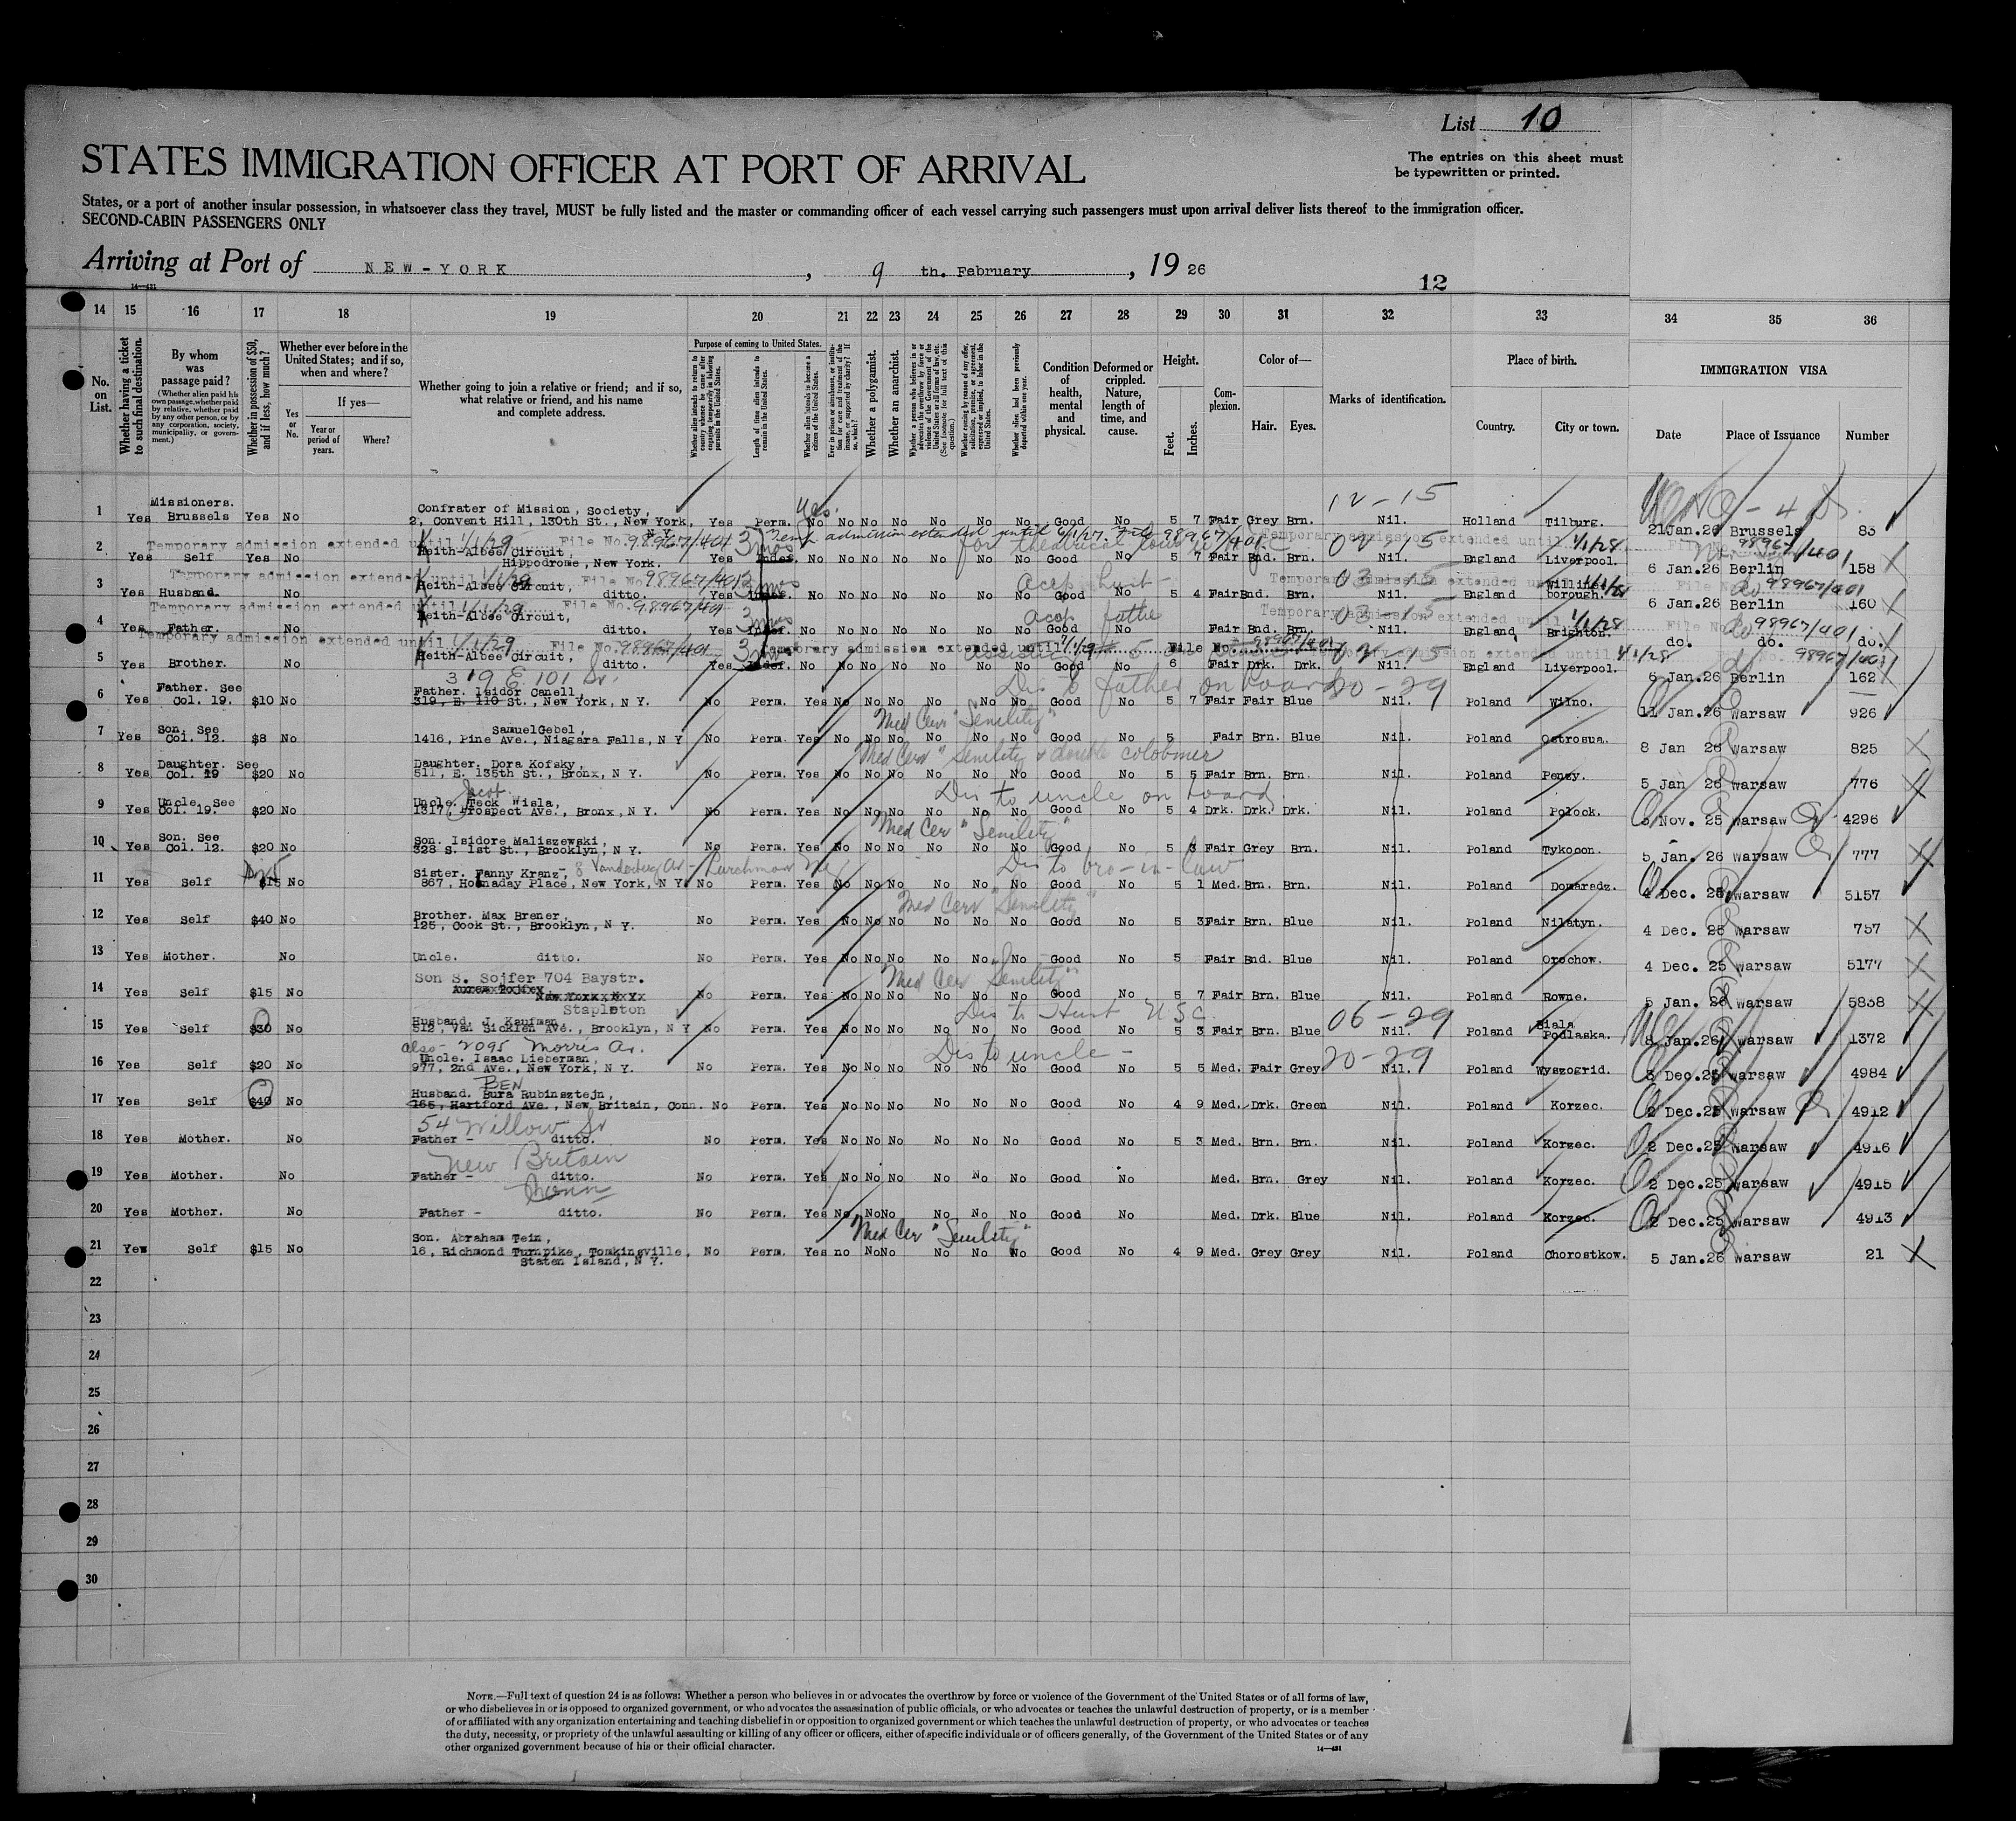 List 10
STATES IMMIGRATION OFFICER AT PORT OF ARRIVAL
The entries on this sheet must
be typewritten or printed.
States, or a port of another insular possession, in whatsoever class they travel, MUST be fully listed and the master or commanding officer of each vessel carrying such passengers must upon arrival deliver lists thereof to the immigration officer.
SECOND-CABIN PASSENGERS ONLY
Arriving at Port of NEW-YORK, 9 th. February, 19 26
14—431
12
14 15 16 17 18 19 20 21 22 23 24 25 26 27 28 29 30 31 32 33 34 35 36
No. on List.
Whether having a ticket to such final destination.
By whom was passage paid?
(Whether alien paid his own passage, whether paid by relative, whether paid by any other person, or by any corporation, society, municipality, or government.)
Whether in possession of $50, and if less, how much?
Whether ever before in the United States; and if so, when and where?
Yes or No.
If yes—
Year or period of years.
Where?
Whether going to join a relative or friend; and if so, what relative or friend, and his name and complete address.
Purpose of coming to United States.
Whether alien intends to return to country whence he came after engaging temporarily in laboring pursuits in the United States.
Length of time alien intends to remain in the United States.
Whether alien intends to become a citizen of the United States.
Whether a polygamist.
Whether an anarchist.
Condition of health, mental and physical.
Deformed or crippled. Nature, length of time, and cause.
Height.
Feet. Inches.
Complexion.
Color of—
Hair. Eyes.
Marks of identification.
Place of birth.
Country. City or town.
IMMIGRATION VISA
Date Place of Issuance Number
1 Yes Missioners. Brussels Yes No Confrater of Mission, Society, 2, Convent Hill, 130th St., New York, Yes Perm. No Yes. No No No No No No Good No 5 7 Fair Grey Brn. 12-15 Nil. Holland Tilburg. 21 Jan.26 Brussels 83
Temporary admission extended until 1/1/29 File No. 98967/401 3 mos Temp admission extended until 6/1/27. File 98967/401 Temporary admission extended until 1/1/28 File No. 98967/401
2 Yes Self Yes No Keith-Albee Circuit, Hippodrome, New York. Yes Indef. No No No No No No No Good No 5 7 Fair Bnd. Brn. 02-15 Nil. England Liverpool. 6 Jan.26 Berlin 158
Temporary admission extended until 1/1/29 File No. 98967/401 3 mos Temporary admission extended until 1/1/28 File No. 98967/401
3 Yes Husband. No Keith-Albee Circuit, ditto. Yes Indef. No No No No No No No Good No 5 4 Fair Bnd. Brn. 03-15 Nil. England borough. 6 Jan.26 Berlin 160
Temporary admission extended until 1/1/29 File No. 98967/401 3 mos Temporary admission extended until 1/1/28 File No. 98967/401
4 Yes Father. No Keith-Albee Circuit, ditto. Yes Indef. No No No No No No No Good No Fair Bnd. Brn. 03-15 Nil. England Brighton. do. do. do.
Temporary admission extended until 1/1/29 File No. 98967/401 3 mos Temporary admission extended until 7/1/29 File No. 98967/401 Temporary admission extended until 1/1/28 98967/401
5 Yes Brother. No Keith-Albee Circuit, ditto. Yes Indef. No No No No No No No Good No 6 Fair Drk. Drk. 02-15 Nil. England Liverpool. 6 Jan.26 Berlin 162
319 E. 101 St. Dis to father on board 20-29
6 Yes Father. See Col. 19. $10 No Father. Isidor Canell, 319, E. 110 St., New York, N Y. No Perm. Yes No No No No No No Good No 5 7 Fair Fair Blue Nil. Poland Wilno. 11 Jan.26 Warsaw 926
Med Cer "Senility"
7 Yes Son. See Col. 12. $8 No Samuel Gebel, 1416, Pine Ave., Niagara Falls, N Y No Perm. Yes No No No No No No Good No 5 Fair Brn. Blue Nil. Poland Ostrosua. 8 Jan 26 Warsaw 825
Med Cer "Senility &
8 Yes Daughter. See Col. 19 $20 No Daughter. Dora Kofsky, 511, E. 135th St., Bronx, N Y. No Perm. Yes No No No No No No Good No 5 5 Fair Brn. Brn. Nil. Poland Penzy. 5 Jan 26 Warsaw 776
Jacob Dis to uncle on board
9 Yes Uncle. See Col. 19. $20 No Uncle. Teck Wisla, 1317, Prospect Ave., Bronx, N Y. No Perm. Yes No No No No No No Good No 5 4 Drk. Drk. Drk. Nil. Poland Polock. 6 Nov. 25 Warsaw 4296
Med Cer "Senility"
10 Yes Son. See Col. 12. $20 No Son. Isidore Maliszewski, 328 S. 1st St., Brooklyn, N Y. No Perm. Yes No No No No No No Good No 5 3 Fair Grey Brn. Nil. Poland Tykocon. 5 Jan. 26 Warsaw 777
Dis to bro-in-law
11 Yes Self $15 No Sister. Fanny Kranz, 867, Hornaday Place, New York, N Y. No Perm. Yes No No No No No No Good No 5 1 Med. Brn. Brn. Nil. Poland Domaradz. 4 Dec. 25 Warsaw 5157
Med Cer "Senility"
12 Yes Self $40 No Brother. Max Brener, 125, Cook St., Brooklyn, N Y. No Perm. Yes No No No No No No Good No 5 3 Fair Brn. Blue Nil. Poland Nilatyn. 4 Dec. 25 Warsaw 757
13 Yes Mother. No Uncle. ditto. No Perm. Yes No No No No No No Good No 5 Fair Bnd. Blue Nil. Poland Orochow. 4 Dec. 25 Warsaw 5177
Med Cer "Senility"
14 Yes Self $15 No Son S. Sojfer 704 Baystr. Stapleton No Perm. Yes No No No No No No Good No 5 7 Fair Brn. Blue Nil. Poland Rowne. 5 Jan. 26 Warsaw 5838
Dis to Husb USC. 06-29
15 Yes Self $30 No Husband. J. Kaufman 512, Van Sicklen Ave., Brooklyn, N Y No Perm. Yes No No No No No No Good No 5 3 Fair Brn. Blue Nil. Poland Biala Podlaska. 8 Jan.26 Warsaw 1372
also - 2095 Morris Av. Dis to uncle - 20-29
16 Yes Self $20 No Uncle. Isaac Lieberman, 977, 2nd Ave., New York, N Y. No Perm. Yes No No No No No No Good No 5 5 Med. Fair Grey Nil. Poland Wyszogrid. 3 Dec.25 Warsaw 4984
BEN
17 Yes Self $40 No Husband. Bura Rubinsztejn, 165, Hartford Ave., New Britain, Conn. No Perm. Yes No No No No No No Good No 4 9 Med. Drk. Green Nil. Poland Korzec. 2 Dec.25 Warsaw 4912
54 Willow St
18 Yes Mother. No Father - ditto. No Perm. Yes No No No No No No Good No 5 3 Med. Brn. Brn. Nil. Poland Korzec. 2 Dec.25 Warsaw 4916
New Britain
19 Yes Mother. No Father - ditto. No Perm. Yes No No No No No No Good No Med. Brn. Grey Nil. Poland Korzec. 2 Dec.25 Warsaw 4915
Conn
20 Yes Mother. No Father - ditto. No Perm. Yes No No No No No No Good No Med. Drk. Blue Nil. Poland Korzec. 2 Dec.25 Warsaw 4913
Med Cer "Senility"
21 Yes Self $15 No Son. Abraham Tein, 16, Richmond Turnpike, Tomkinsville, Staten Island, N Y. No Perm. Yes no No No No No No Good No 4 9 Med. Grey Grey Nil. Poland Chorostkow. 5 Jan.26 Warsaw 21
22
23
24
25
26
27
28
29
30
NOTE.—Full text of question 24 is as follows: Whether a person who believes in or advocates the overthrow by force or violence of the Government of the United States or of all forms of law,
or who disbelieves in or is opposed to organized government, or who advocates the assassination of public officials, or who advocates or teaches the unlawful destruction of property, or is a member
of or affiliated with any organization entertaining and teaching disbelief in or opposition to organized government or which teaches the unlawful destruction of property, or who advocates or teaches
the duty, necessity, or propriety of the unlawful assaulting or killing of any officer or officers, either of specific individuals or of officers generally, of the Government of the United States or of any
other organized government because of his or their official character.
14—431